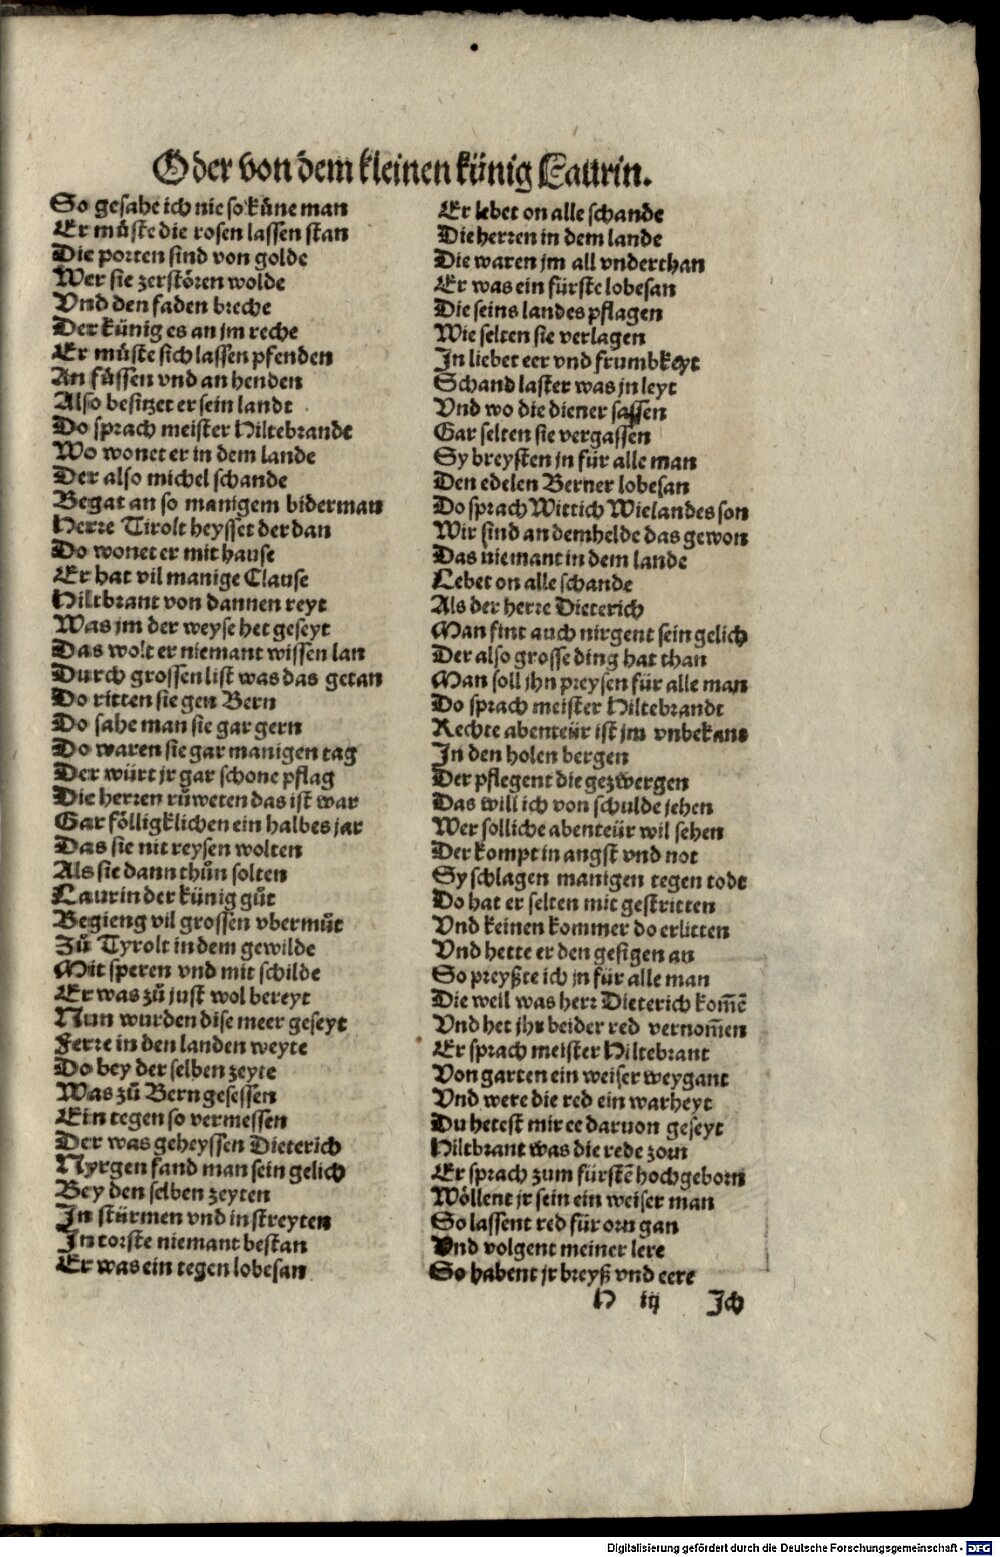 Oder von dem kleinen künig Laurin.
So gesahe ich nie so küne man
Er müste die rosen lassen stan
Die porten sind von golde
Wer sie zerstören wolde
Vnd den faden breche
Der künig es an jm reche
Er müste sich lassen pfenden
An füssen vnd an henden
Also besitzet er sein landt
Do sprach meister Hiltebrande
Wo wonet er in dem lande
Der also michel schande
Begat an so manigem biderman
Herre Tirolt heysset der dan
Do wonet er mit hause
Er hat vil manige Clause
Hiltbrant von dannen reyt
Was jm der weyse het geseyt
Das wolt er niemant wissen lan
Durch grossen list was das getan
Do ritten sie gen Bern
Do sahe man sie gar gern
Do waren sie gar manigen tag
Der würt jr gar schone pflag
Die herren rüweten das ist war
Gar fölligklichen ein halbes jar
Das sie nit reysen wolten
Als sie dann thůn solten
Laurin der künig gůt
Begieng vil grossen vbermůt
Zů Tyrolt in dem gewilde
Mit speren vnd mit schilde
Er was zů just wol bereyt
Nun wurden dise meer geseyt
Ferre in den landen weyte
Do bey der selben zeyte
Was zů Bern gesessen
Ein tegen so vermessen
Der was geheyssen Dieterich
Nyrgen fand man sein gelich
Bey den selben zeyten
In stürmen vnd in streyten
In torste niemant bestan
Er was ein tegen lobesan
Er lebet on alle schande
Die herren in dem lande
Die waren jm all vnderthan
Er was ein fürste lobesan
Die seins landes pflagen
Wie selten sie verlagen
In liebet eer vnd frumbkeyt
Schand laster was jn leyt
Vnd wo die diener sassen
Gar selten sie vergassen
Sy breysten jn für alle man
Den edelen Berner lobesan
Do sprach Wittich Wielandes son
Wir sind an dem helde das gewon
Das niemant in dem lande
Lebet on alle schande
Als der herre Dieterich
Man fint auch nirgent sein gelich
Der also grosse ding hat than
Man soll jhn preysen für alle man
Do sprach meister Hiltebrandt
Rechte abenteür ist jm vnbekant
In den holen bergen
Der pflegent die gezwergen
Das will ich von schulde jehen
Wer solliche abenteür wil sehen
Der kompt in angst vnd not
Sy schlagen manigen tegen todt
Do hat er selten mit gestritten
Vnd keinen kommer do erlitten
Vnd hette er den gesigen an
So preyßte ich jn für alle man
Die weil was herr Dieterich kom̄ē
Vnd het jhr beider red vernom̄en
Er sprach meister Hiltebrant
Von garten ein weiser weygant
Vnd were die red ein warheyt
Du hetest mir ee daruon geseyt
Hiltbrant was die rede zorn
Er sprach zum fürstē hochgeborn
Wöllent jr sein ein weiser man
So lassent red für orn gan
Vnd volgent meiner lere
So habent jr breyß vnd eere
H iij Ich
Digitalisierung gefördert durch die Deutsche Forschungsgemeinschaft - DFG